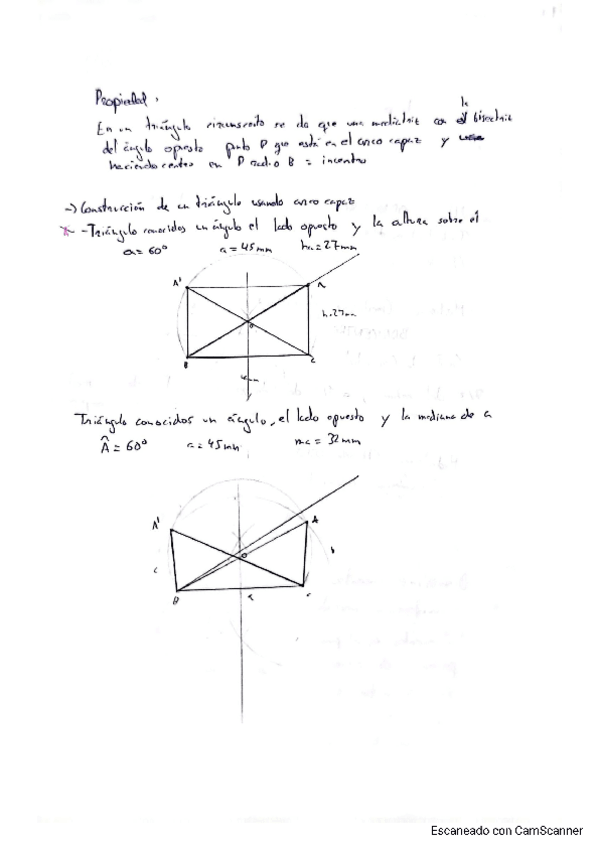 Propiedad,
En un triángulo circunscrito se da que una mediatriz con la bisectriz
del ángulo opuesto punto P que está en el arco capaz y
haciendo centro en P radio B = incentro
-> Construcción de un triángulo usando arco capaz
- Triángulo conocidos un ángulo el lado opuesto y la altura sobre el
a = 60° a = 45mm ha = 27mm
A' A
h.27mm
B C
Triángulo conocidos un ángulo, el lado opuesto y la mediana de a
Â = 60° a = 45mm ma = 32mm
A' A
c b
B a c
Escaneado con CamScanner